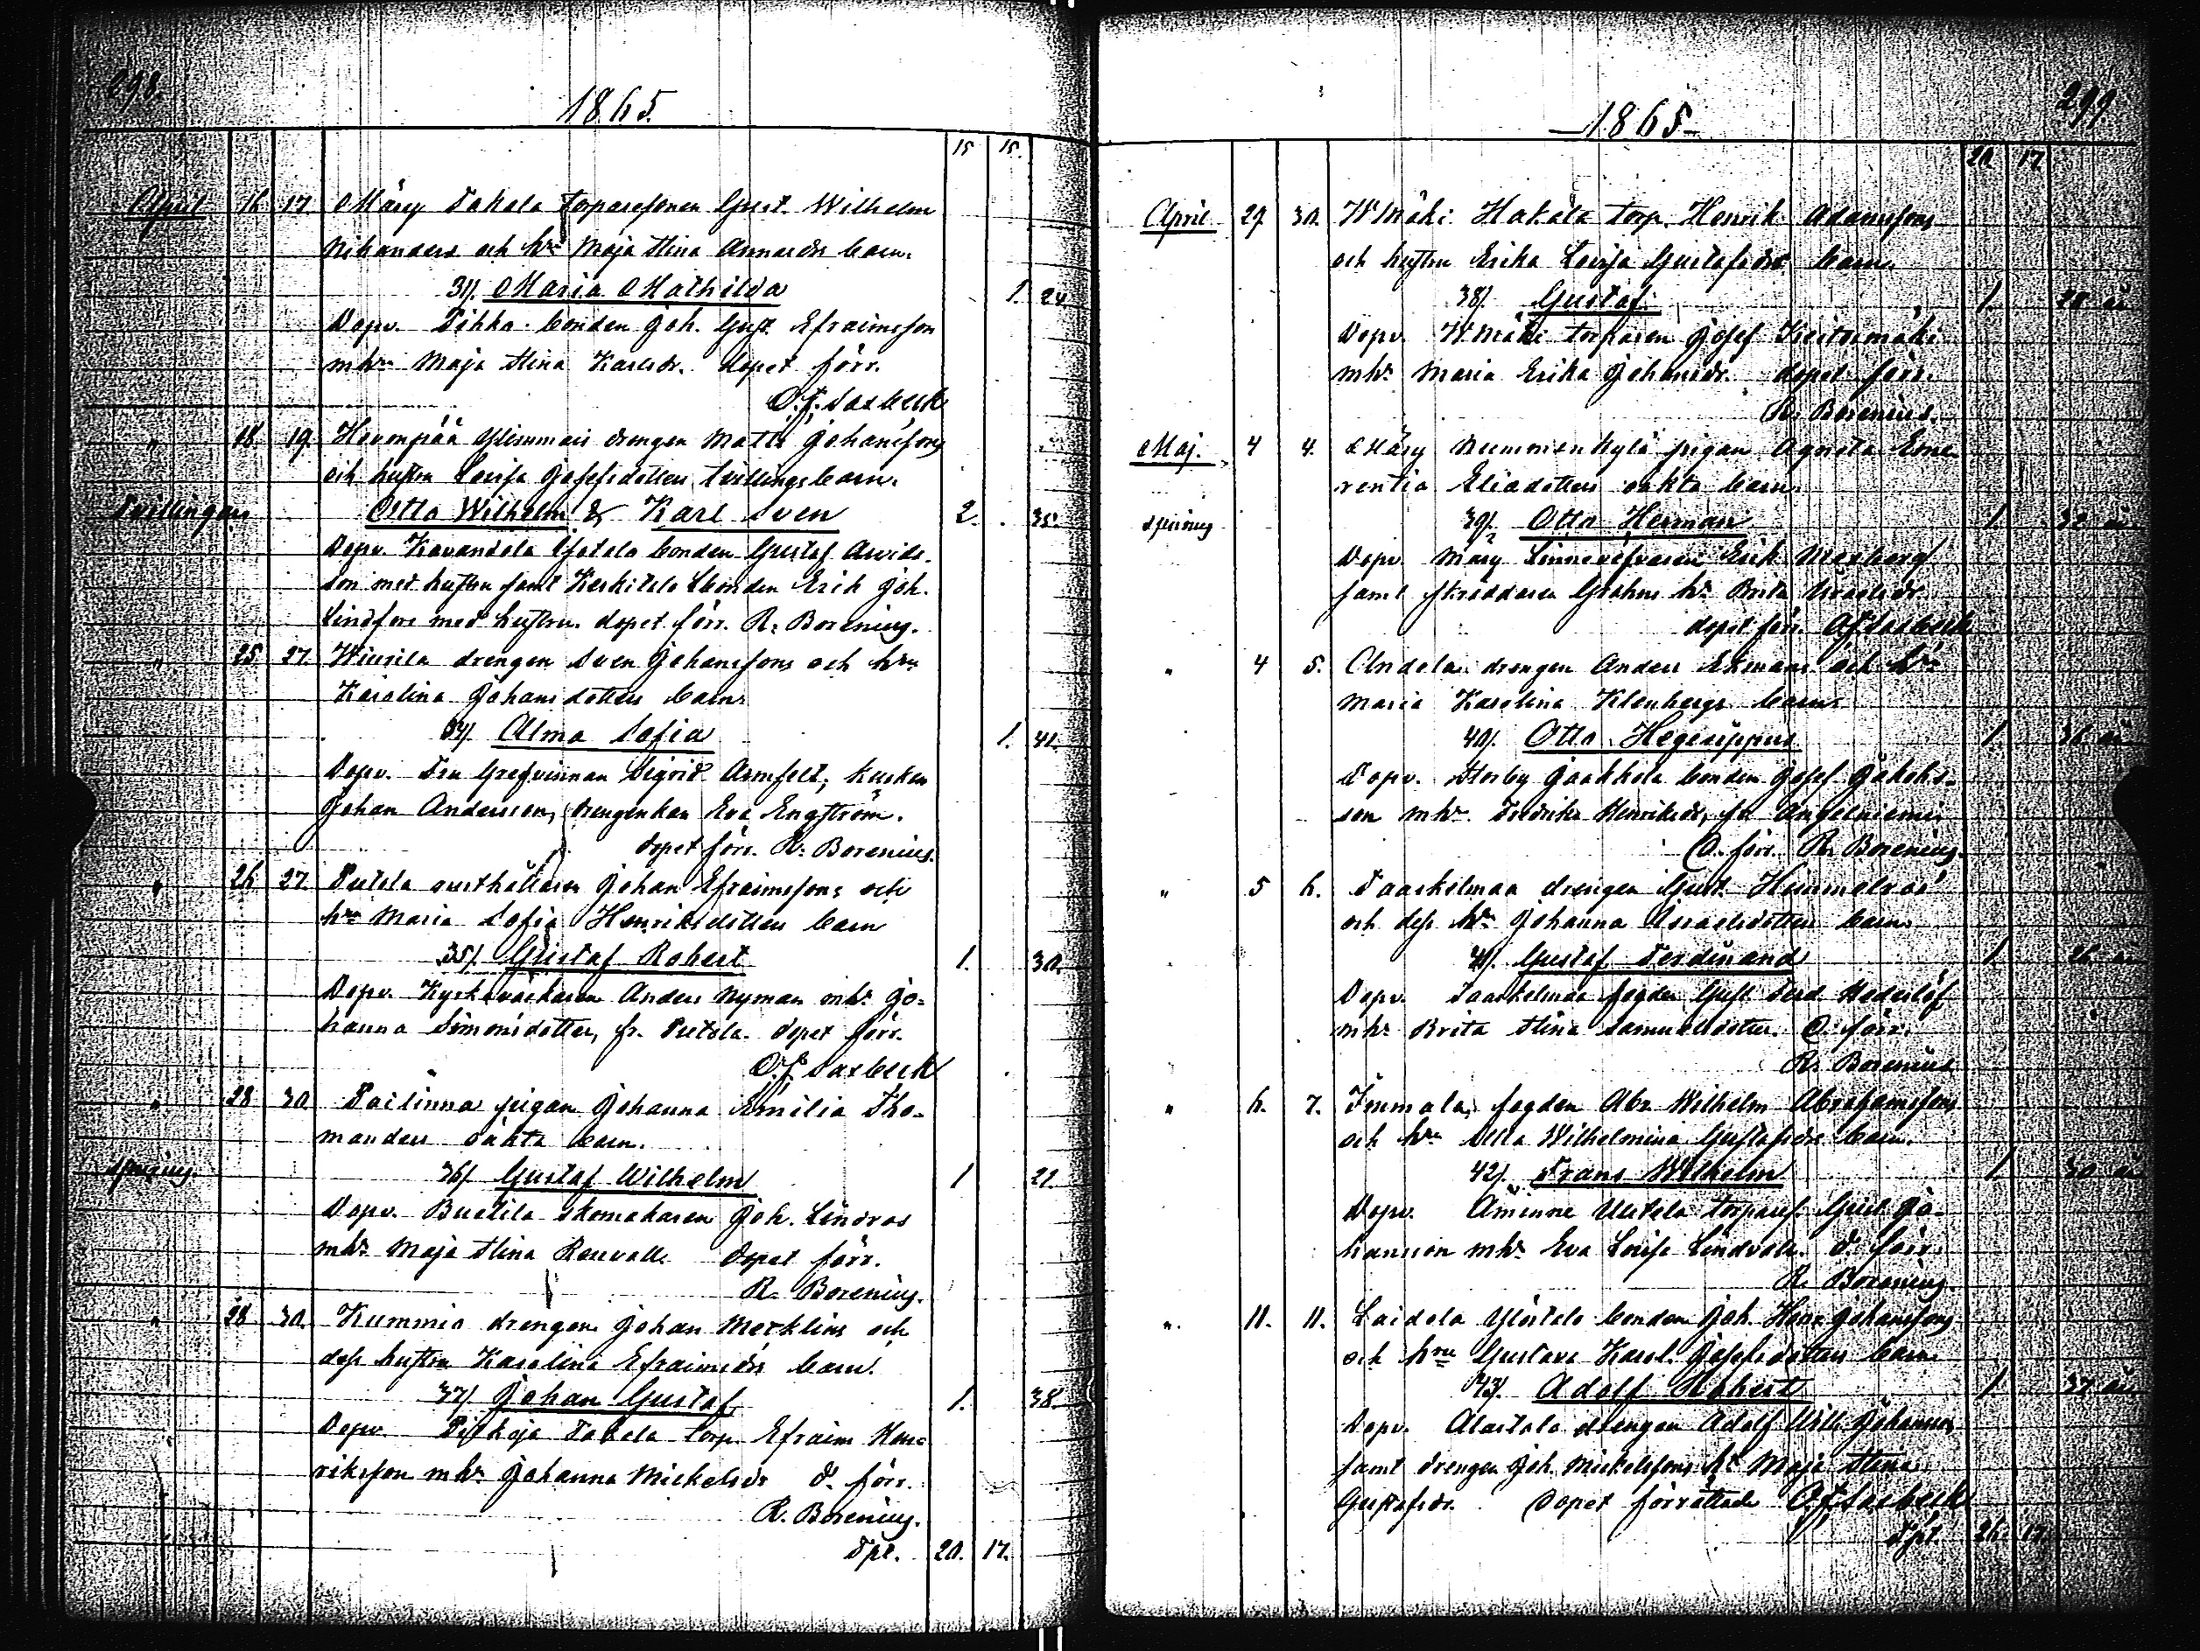 298.
1865.
15 15.
April 16 17 Märy Takala torparesonen Gust. Wilhelm
Nihanders och hrs Maja Stina Annaedr barn.
31/. Maria Mathilda 1. 24
Dopv. Pihka bonden Joh. Gust. Efraimsson
mhr Maja Stina Karlsdr. dopet förr.
O. F. Saxbeck
" 18 19. Hevonpää Ylismmais drengen Matts Johanssons
och hustru Lovisa Josefsdotters tvillingsbarn.
Tvillingar Otto Wilhelm & Karl Sven 2. 35.
Dopv. Kavandola Yotala bonden Gustaf Arvids-
son med hustru samt Keskitalo bonden Erik Joh.
Lindfors med hustru. dopet förr. R. Borenius.
" 25 27. Wiurila drengen Sven Johanssons och hrs
Karolina Johansdotters barn.
34/. Alma Sofia 1. 41.
Dopv. Fru Grefvinnan Sigrid Armfelt, kusken
Johan Andersson, drengenkan Eva Engström.
dopet förr. R. Borenius.
" 26 27. Putola rusthållaren Johan Efraimssons och
hrs Maria Sofia Henriksdotters barn
35/. Gustaf Robert 1. 30.
Dopv. Kyrkoväktaren Anders Nyman mhr Jo-
hanna Simonsdotter, fr. Putola. dopet förr.
O. F. Saxbeck
" 28 30 Pailinna pigan Johanna Emilia Tho-
manders oäkta barn.
spuring 36/. Gustaf Wilhelm 1 21.
Dopv. Buetila skomakaren Joh. Lindros
mhr Maja Stina Renvall. dopet förr.
R. Borenius.
" 28 30. Kummia drengen Johan Mecklins och
dess hustru Karolina Efraimsdrs barn.
37/. Johan Gustaf 1. 38.
Dopv. Takala torp. Efraim Hen-
riksson mhr Johanna Michelsdr d. förr.
R. Borenius.
Tpt. 20. 17.
299
1865
20 17
April 29 30. Wmäki Hakala torp. Henrik Adamssons
och hustru Erika Lovisa Gustafsdrs barn.
38/. Gustaf. 1. 28 år
Dopv. Wmäki torparen Josef Keitosmäki
mhr Maria Erika Johansdr. dopet förr.
R. Borenius.
Maj. 4 4. Märy Nummenkylä pigan Agneta Eme-
rentia Eliædotters oäkta barn.
spuring 39/. Otto Herman 1. 32 år
Dopv. Märy Linneväfvaren Erik Mexberg
samt skräddaren Grahns hr Brita Israelsdr.
dopet förr. O. F. Saxbeck
" 4 5. Andola drengen Anders Ekmans och hrs
Maria Karolina Klenbergs barn
40/. Otto Hegesippus 1. 36 år
Dopv. Storby Jaakkola bonden Josef Jakobs-
son mhr Fredrika Henriksdr, fr Angelniemi
D. förr. R. Borenius.
" 5 6. Taaskelmaa drengen Gust. Himmelroos
och dess hrs Johanna Israelsdotters barn.
41/. Gustaf Ferdinand 1 26 år
Dopv. Taaskelmaa fogden Gust. Ferd. Hederlöf
mhr Brita Stina Samuelsdotter. D. förr.
R. Borenius
" 6. 7. Immala fogden Abr. Wilhelm Abrahamssons
och hrs Ulla Wilhelmina Gustafsdrs barn.
42/. Frans Wilhelm 1 30 år
Dopv. Aminne Uutela torparf. Gust. Jo-
hansson mhr Eva Lovisa Lindvall. D. förr.
R. Borenius
" 11. 11. Laidola Ylöstalo bonden Joh. Henr. Johanssons
och hrs Gustava Karol. Josefsdotters barn
43/. Adolf Robert 1 37 år
Dopv. Alastalo drengen Adolf Wilh. Johansson,
samt drengen Joh. Mickelssons hr Maja Stina
Gustafsdr. Dopet förrättade O. F. Saxbeck
Tpt. 26. 17.